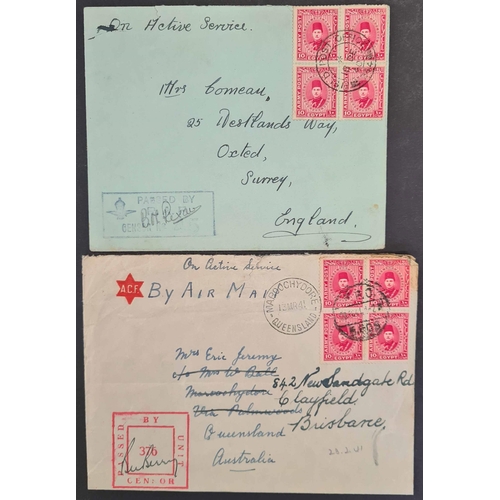 On Active Service.
Mrs Comeau,
25 Westlands Way,
Oxted,
Surrey,
England.
PASSED BY
ARMY POST
10 EGYPT
On Active Service
A.C.F.
By AIR MAIL
MAROOCHYDORE
13 MR 41
QUEENSLAND
ARMY POST
10 EGYPT
Mrs Eric Jeremy
c/o Mrs W Ball
Maroochydore
Via Palmwoods
Queensland
Australia
542 New Sandgate Rd
Clayfield
Brisbane
PASSED BY UNIT CENSOR
376
28.2.41